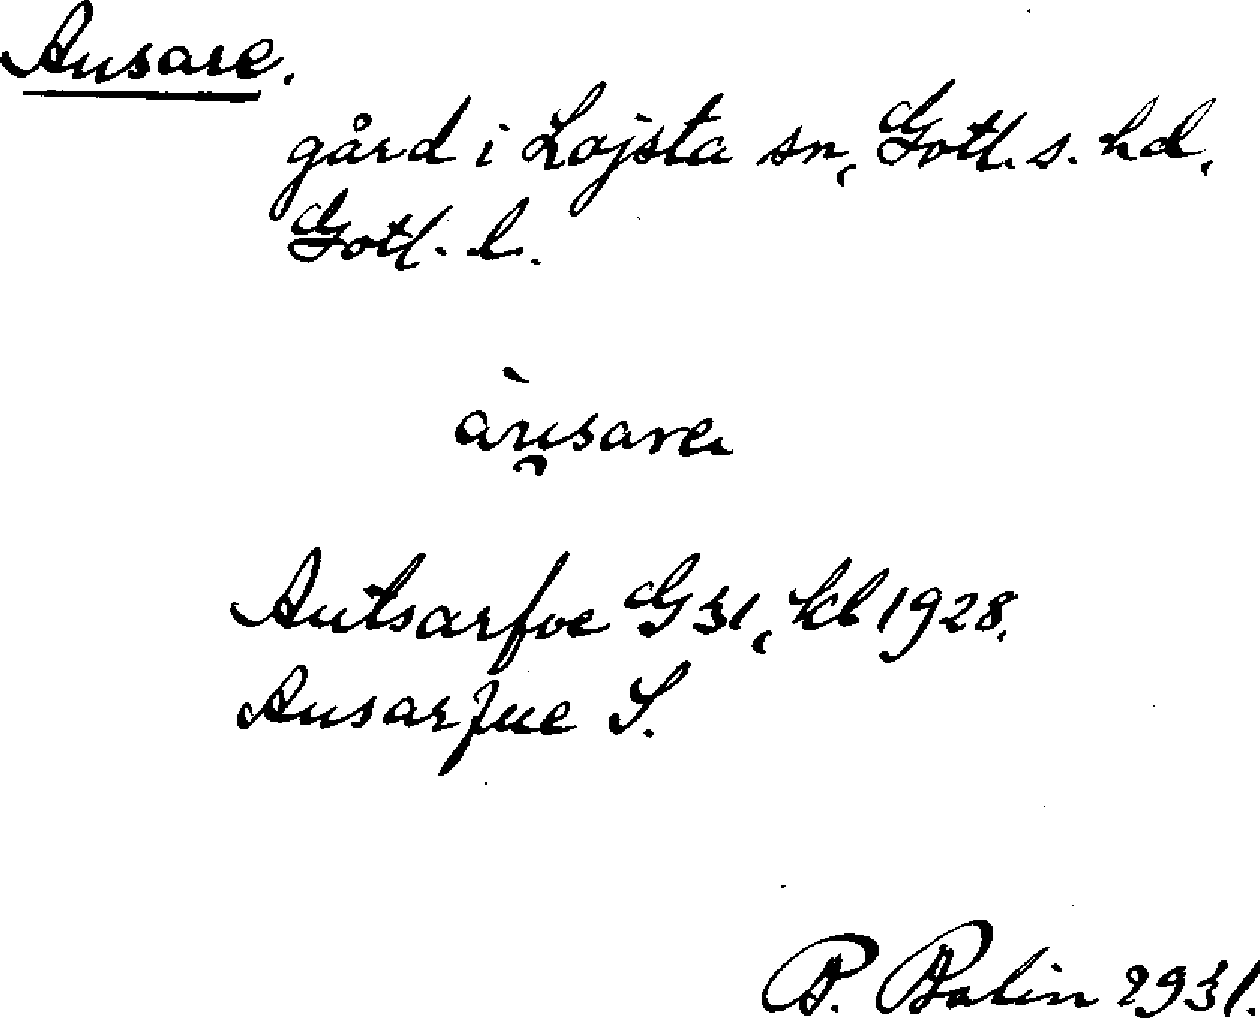 Ausare.
gård i Lojsta sn, Gotl. s. hd,
Gotl. l.
àu̯sare
Autsarfve G 31, kb 1928.
Ausarfue S.
B. Bolin 1931.